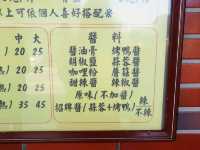 以上可依個人喜好搭配
中 大
醬料
20 25
醬油膏 烤鴨醬
20 25
胡椒鹽 蒜蓉醬
20 25
咖哩粉 蘑菇醬
20 25
甜辣醬 辣椒醬
35 45
原味/不加醬
招牌醬/蒜蓉+烤鴨/辣
不辣